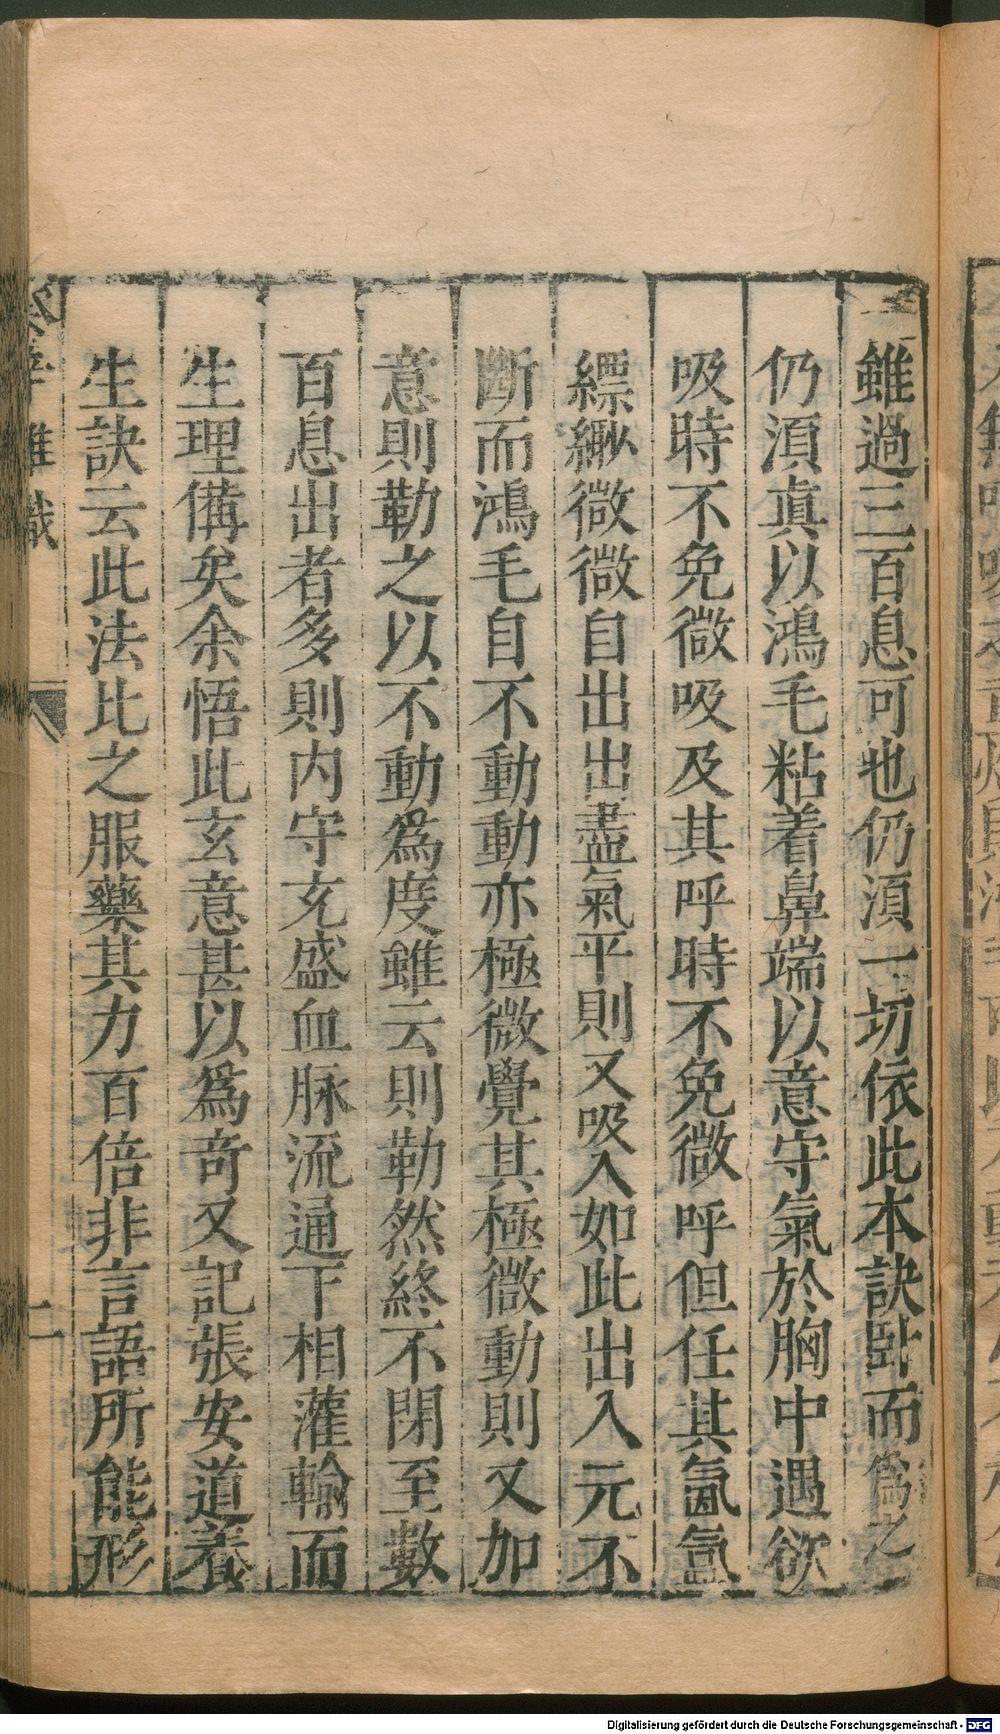 雖過三百息可也仍須一切依此本訣卧而為之
仍須真以鴻毛粘着鼻端以意守氣於胸中遇欲
吸時不免微吸及其呼時不免微呼但任其氤氳
縹緲微微自出出盡氣平則又吸入如此出入元不
斷而鴻毛自不動動亦極微覺其極微動則又加
意則勒之以不動為度雖云則勒然終不閉至數
百息出者多則内守充盛血脉流通下相灌輸而
生理備矣余悟此玄意甚以為奇又記張安道養
生訣云此法比之服藥其力百倍非言語所能形
雜識
二
Digitalisierung gefördert durch die Deutsche Forschungsgemeinschaft - DFG